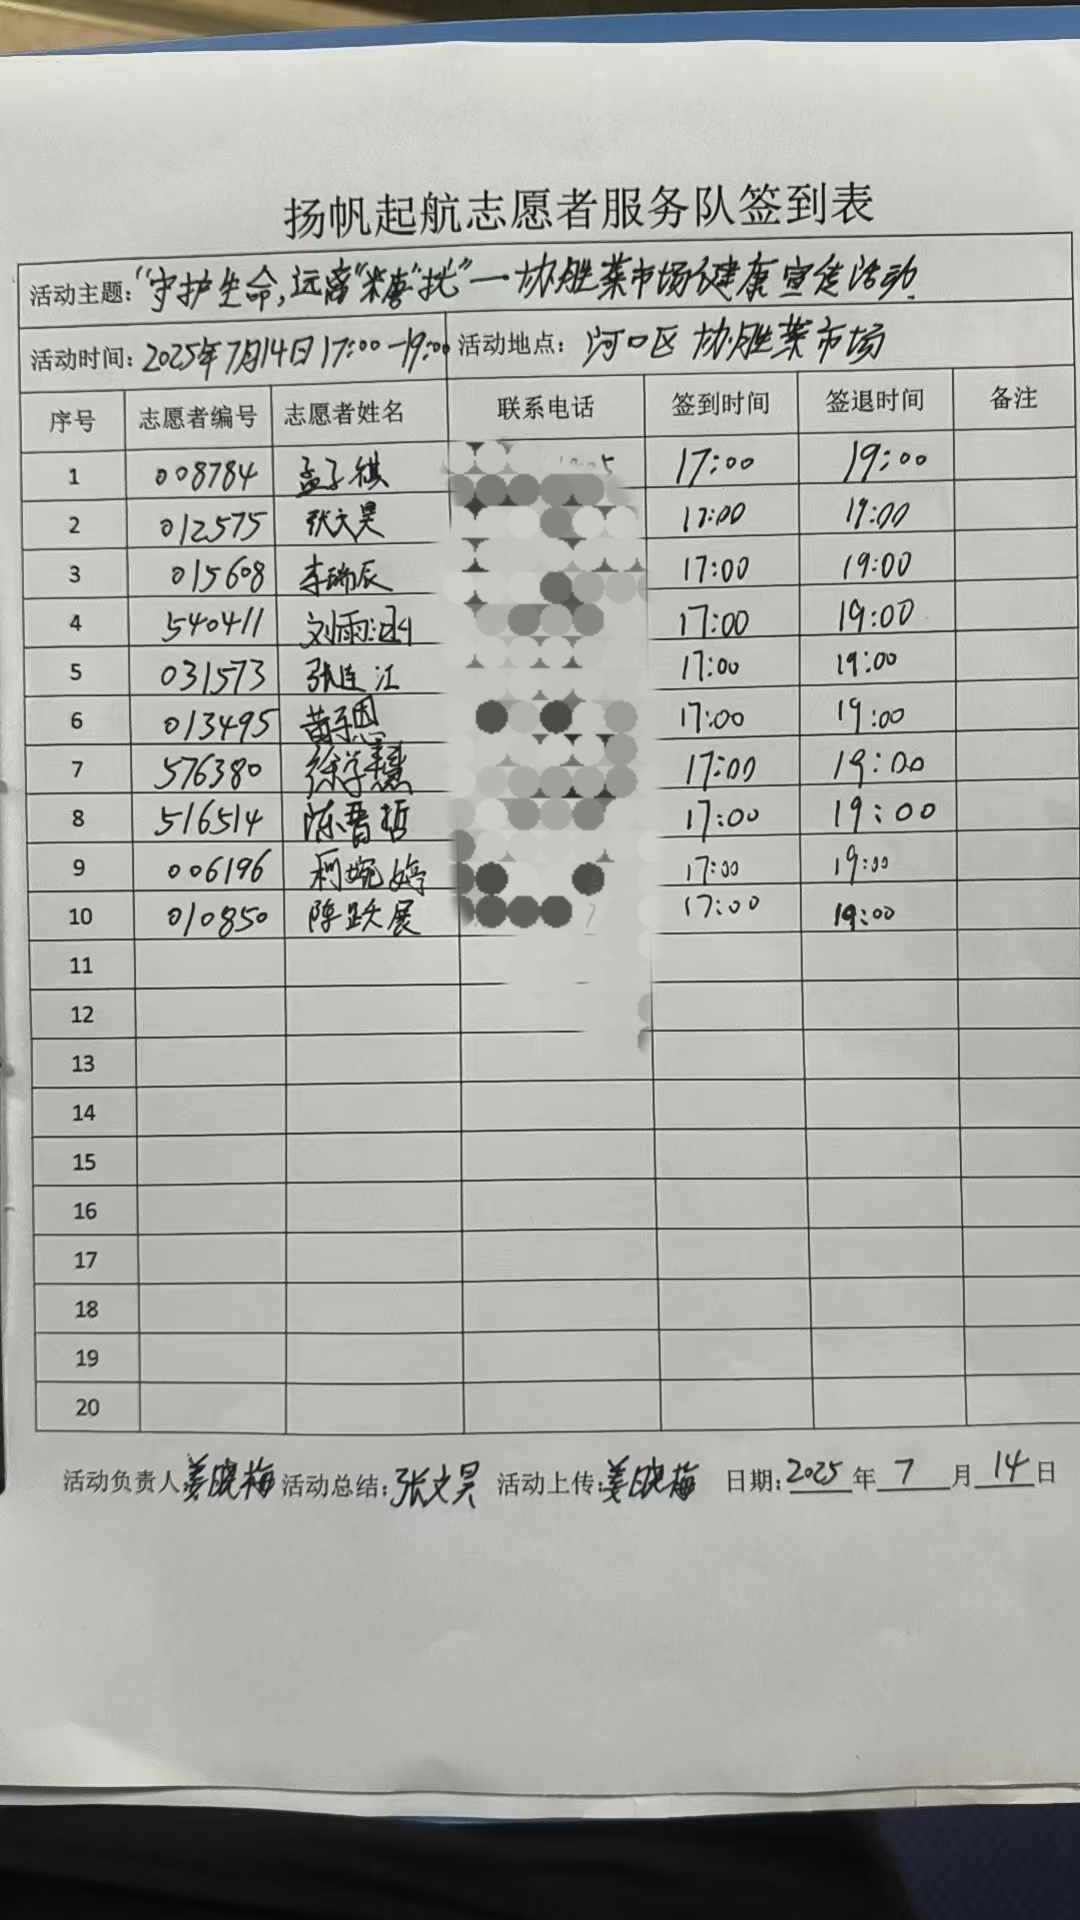 扬帆起航志愿者服务队签到表
活动主题：“守护生命，远离“糖”扰”一协胜菜市场健康宣传活动
活动时间：2025年7月14日17:00-19:00 活动地点：河口区 协胜菜市场
序号 志愿者编号 志愿者姓名 联系电话 签到时间 签退时间 备注
1 008784 孟子祺 17:00 19:00
2 012575 张文昊 17:00 19:00
3 015608 李瑞辰 17:00 19:00
4 540411 刘雨涵 17:00 19:00
5 031573 张连江 17:00 19:00
6 013495 黄子恩 17:00 19:00
7 576380 徐学慧 17:00 19:00
8 516514 陈晋哲 17:00 19:00
9 006196 婉婷 17:00 19:00
10 010850 陈跃展 17:00 19:00
11
12
13
14
15
16
17
18
19
20
活动负责人：姜晓梅 活动总结：张文昊 活动上传：姜晓梅 日期：2025年7月14日